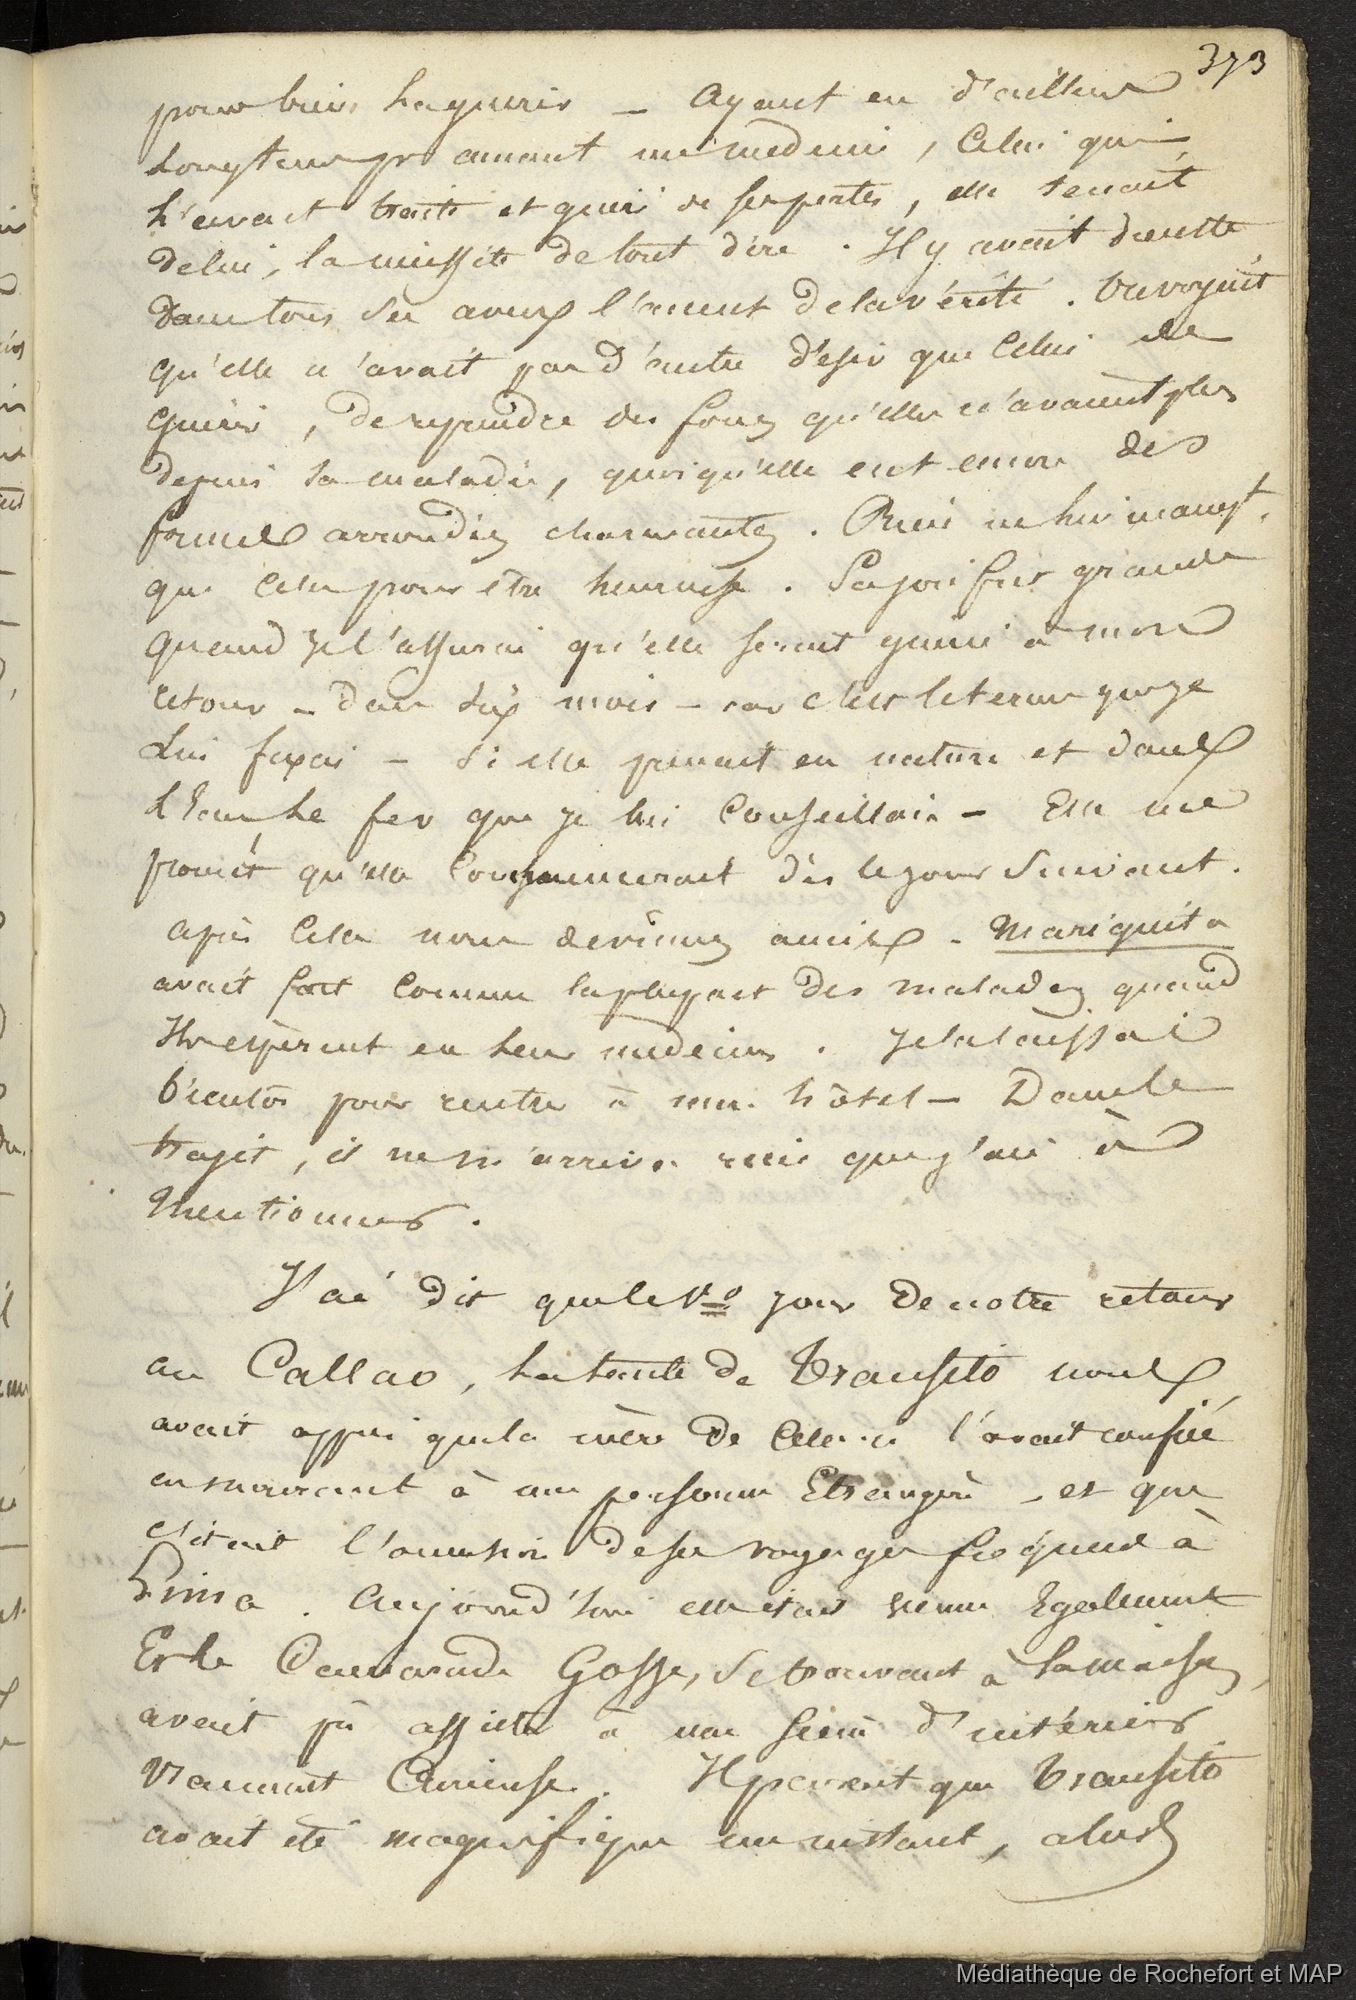 373
pour bien la guerir _ ayant eu d'ailleurs
longtemps pr amant un medecin, celui qui
l'avait traité et guéri de ses pertes, elle tenait
de lui, la necessité de tout dire. Il y avait du reste
dans tous ses aveux l'accent de la vérité. On voyait
qu'elle n'avait pas d'autre désir que celui de
guérir, de reprendre des forces qu'elle n'avait plus
depuis sa maladie, quoiqu'elle eut encore des
formes arrondies charmantes. Rien ne lui manqt
que cela pour être heureuse. Sa joie fut grande
quand je l'assurai qu'elle serait guérie à mon
retour _ dans six mois _ car c'est le terme que je
lui fixai _ si elle prenait en nature et dans
l'eau le fer que je lui conseillais _ Elle me
promit qu'elle commencerait dès le jour suivant.
après cela nous devinmes amis. Mariquita
avait fait comme la plupart des malades quand
ils espèrent en leur médecin. Je la laissai
bientôt pour rentrer à mon hôtel _ Dans le
trajet, il ne m'arriva rien que j'aie à
mentionner.
J'ai dit que le 1º jour de notre retour
au Callao, la tante de Transito nous
avait appris que la mère de celle-ci l'avait confiée
en mourant à une personne Etrangère _ et que
c'était l'occasion de ses voyages fréquens à
Lima. Aujourd'hui elle était venue Egalement
Et le Camarade Gosse, se trouvant à la maison,
avait pu assister à une scène d'intérieur
vraiment curieuse. Il parait que Transito
avait été magnifique un instant, alors
Médiathèque de Rochefort et MAP